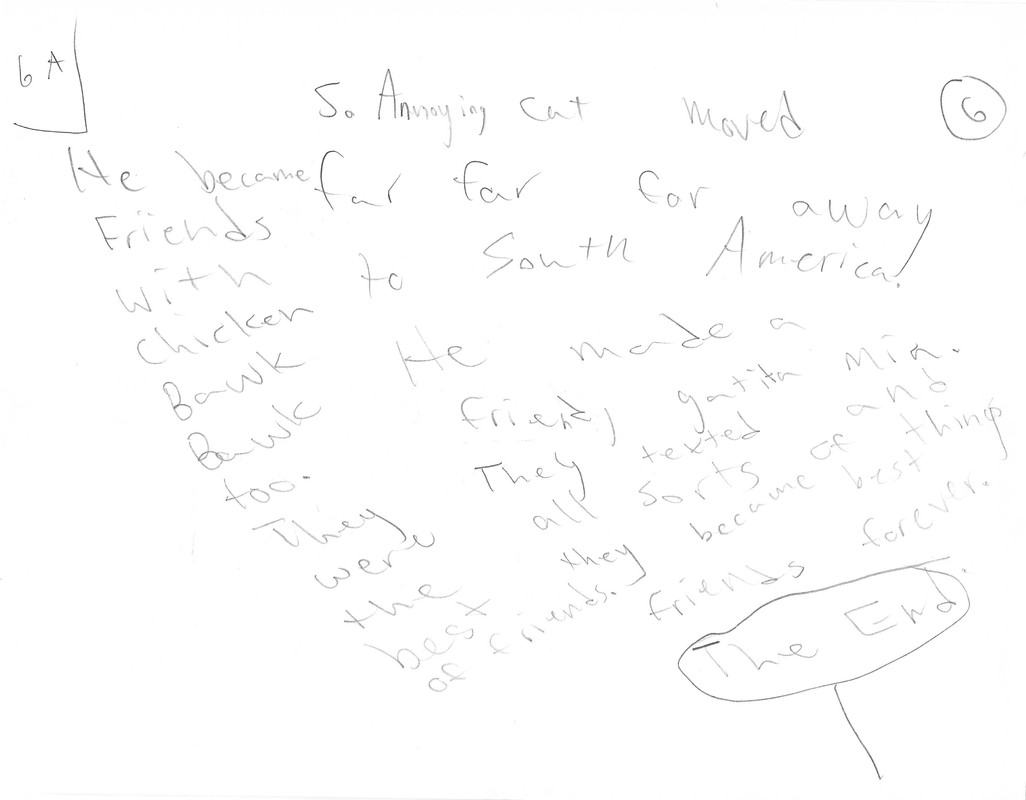 6A
6
So Annoying cat moved
far far far away
to South America!
He made a
friend, gatita mia.
They texted and
all sorts of things
they became best
friends forever.
The End.
He became
Friends
with
chicken
Bawk
Bawk
too.
They
were
the
best
of friends.